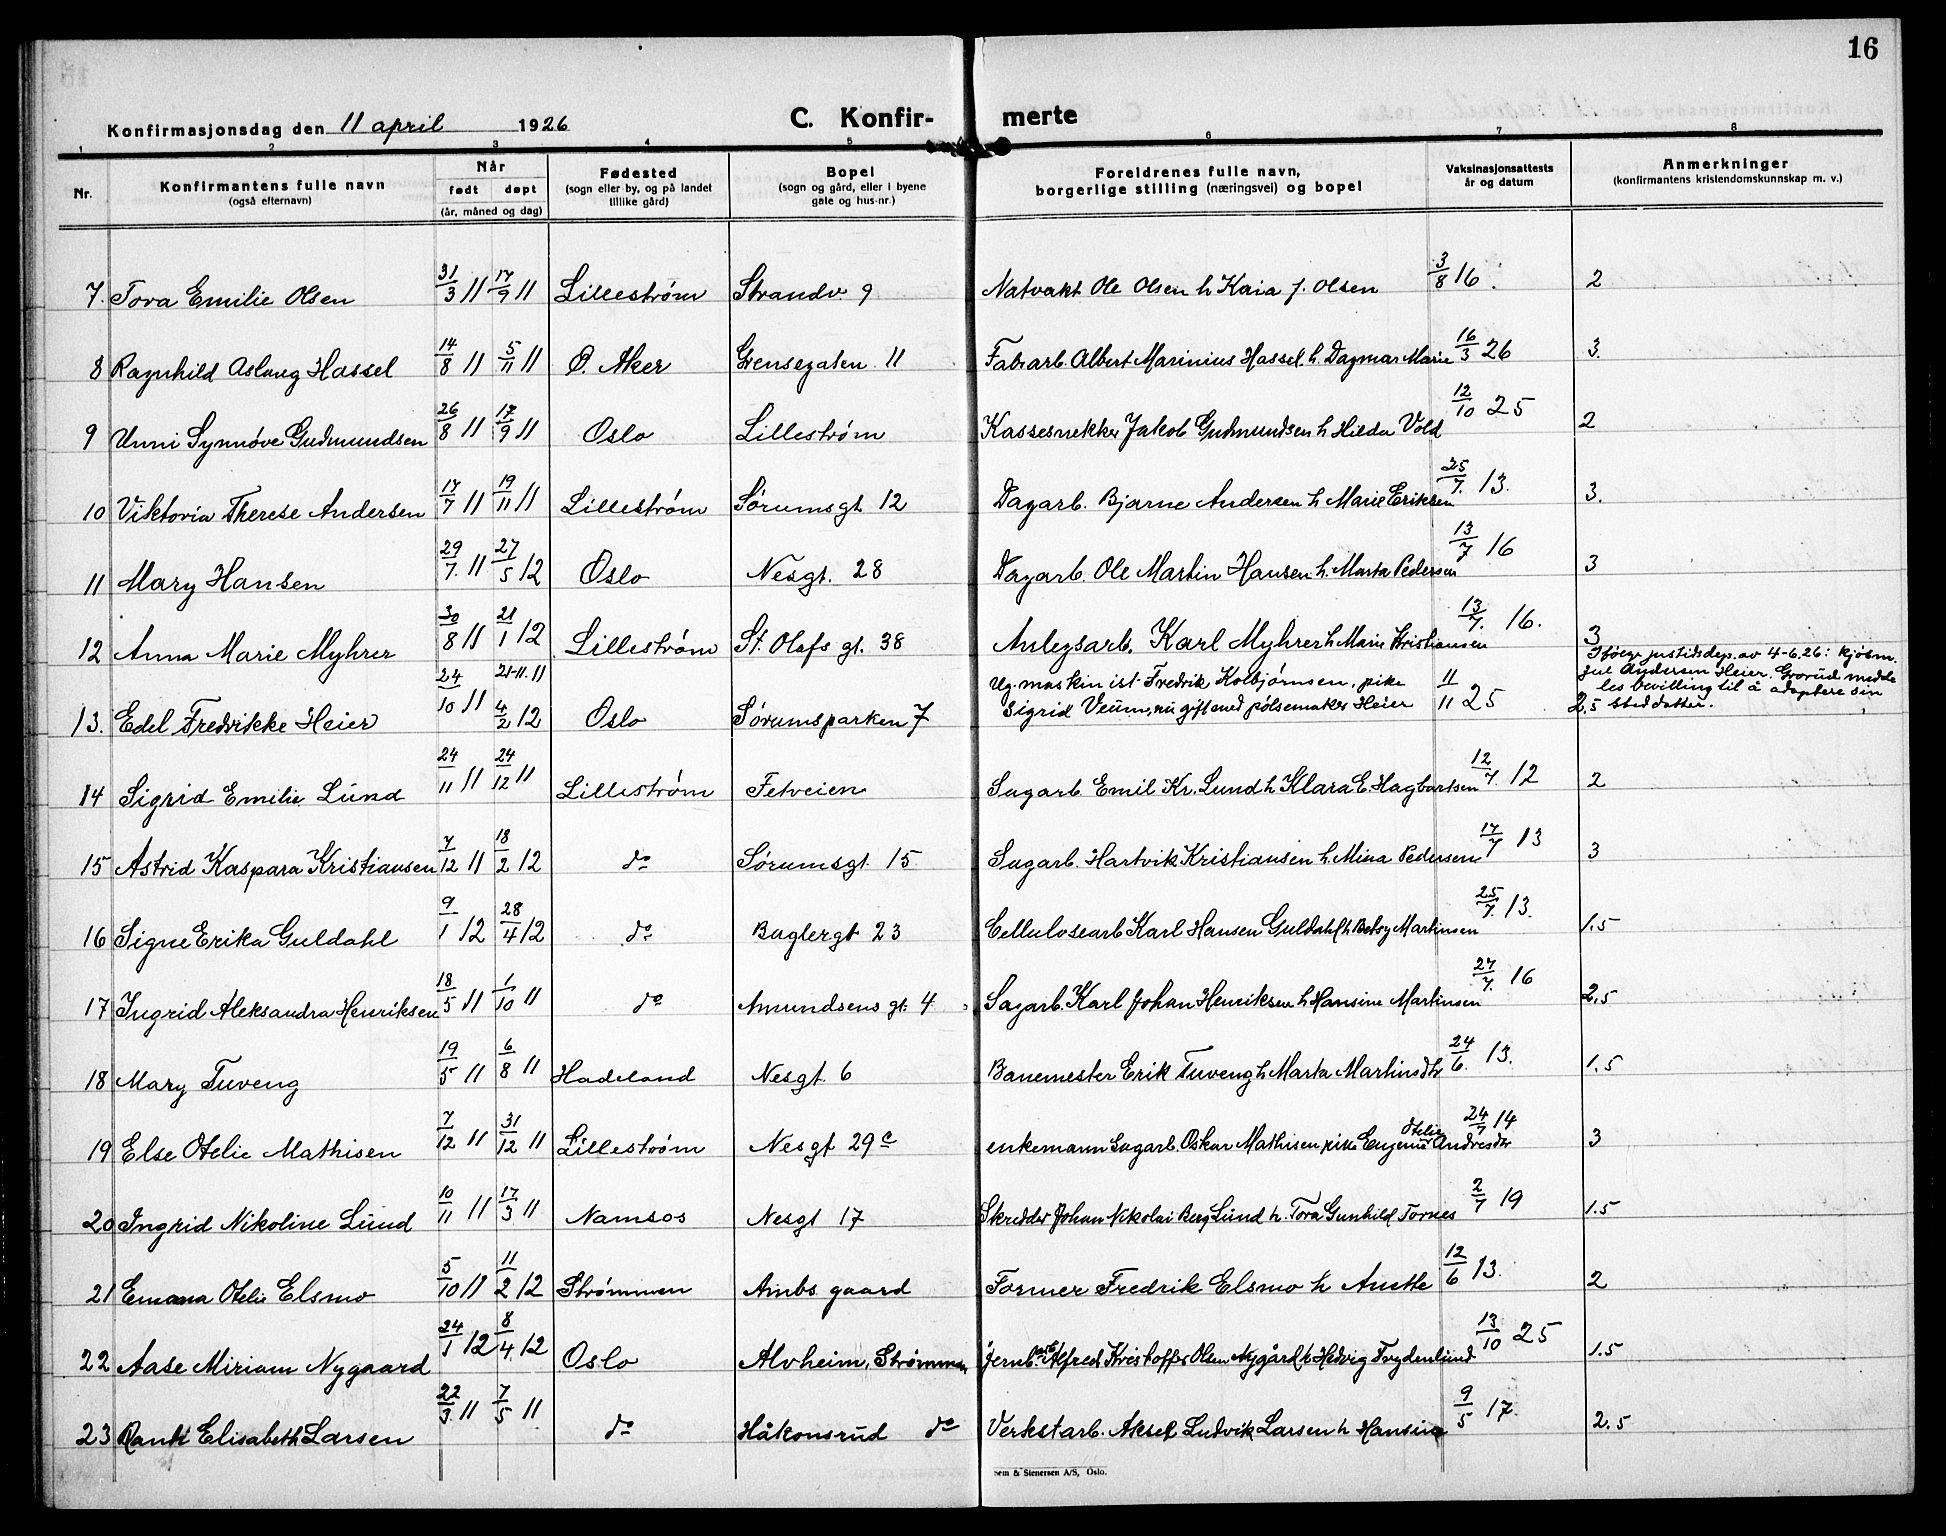 16
Konfirmasjonsdag den 11 april 1926 C. Konfir- merte
1 2 3 4 5 6 7 8
Nr. Konfirmantens fulle navn (også efternavn) Når født døpt (år, måned og dag) Fødested (sogn eller by, og på landet tillike gård) Bopel (sogn og gård, eller i byene gate og hus-nr.) Foreldrenes fulle navn, borgerlige stilling (næringsvei) og bopel Vaksinasjonsattests år og datum Anmerkninger (konfirmantens kristendomskunnskap m. v.)
7. Tora Emilie Olsen 31/3 11 17/9 11 Lillestrøm Strandv. 9 Natvakt Ole Olsen h Kaia J. Olsen 3/8 16. 2
8 Ragnhild Aslaug Hassel 14/8 11 5/11 11 Ø. Aker Grensegaten 11 Fabrarb. Albert Marinius Hassel h. Dagmar Marie 16/3 26 3.
9 Unni Synnøve Gudmundsen 26/8 11 17/9 11 Oslo Lillestrøm Kassesnekker Jakob Gudmundsen h Hilda Vold 12/10 25 2
10 Viktoria Therese Andersen 17/7 11 19/11 11 Lillestrøm Sørumsgt 12 Dagarb. Bjarne Andersen h Marie Eriksen 25/7. 13. 3.
11 Mary Hansen 29/7. 11 27/5 12 Oslo Nesgt. 28 Dagarb. Ole Martin Hansen h. Marta Pedersen 13/7 16 3
12 Anna Marie Myhrer 30/8 11 21/1 12 Lillestrøm St. Olafs gt. 38 Anlegsarb. Karl Myhrer h Marie Kristiansen 13/7. 16. 3
Ifølge justitsdep. av 4-6.26: kjøbm.
Jul Andersen Heier. Grorud medde
les bevilling til å adoptere sin
steddatter.
13. Edel Fredrikke Heier 24/10 11 21-11.11 4/2 12 Oslo Sørumsparken 7 Ug. maskinist Fredrik Kolbjørnsen, pike
Sigrid Veum, nu gift med pølsemaker Heier 11/11 25 2,5
14 Sigrid Emilie Lund 24/11 11 24/12 11 Lillestrøm Fetveien Sagarb. Emil Kr. Lund h Klara E. Hagbartsen 12/7. 12 2
15 Astrid Kaspara Kristiansen 7/12 11 18/2 12 do Sørumsgt. 15 Sagarb. Hartvik Kristiansen h. Mina Pedersen 17/7 13 3
16 Signe Erika Guldahl 9/1 12 28/4 12 do Baglergt 23 Cellulosearb Karl Hansen Guldahl h Betsy Martinsen 25/7. 13. 1.5
17 Ingrid Aleksandra Henriksen 18/5 11 1/10 11 do Amundsens gt. 4 Sagarb. Karl Johan Henriksen h Hansine Martinsen 27/7. 16 2,5
18 Mary Tuveng 19/5 11 6/8 11 Hadeland Nesgt. 6 Banemester Erik Tuveng h Marta Martinsdtr 24/6. 13. 1.5
19 Else Otelie Mathisen 7/12 11 31/12 11 Lillestrøm Nesgt 29c enkemann Sagarb. Oskar Mathisen pike Eugenie Otelie Andresdtr 24/7 14 3
20 Ingrid Nikoline Lund 10/11 11 17/3 11 Namsos Nesgt 17 Skredder Johan Nikolai Berg Lund h. Tora Gunhild Tornes 2/7 19 1.5
21 Emma Otelie Elsmo 5/10 11 11/2 12 Strømmen Ambs gaard Former Fredrik Elsmo h Anette 12/6 13. 2
22 Aase Miriam Nygaard 24/1 12 8/4. 12 Oslo Alvheim, Strømmen Jernb. Alfred Kristoffer Olsen Nygård h Hedvig Trydenlund 13/10 25 1.5
23 Randi Elisabeth Larsen 22/3. 11 7/5 11 do Håkonsrud do Verkstarb. Aksel Ludvik Larsen h Hansine 9/5 17. 2.5
Sem & Stenersen A/S, Oslo.